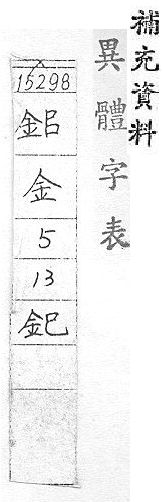 補充資料
異體字表
15298
金
5
13